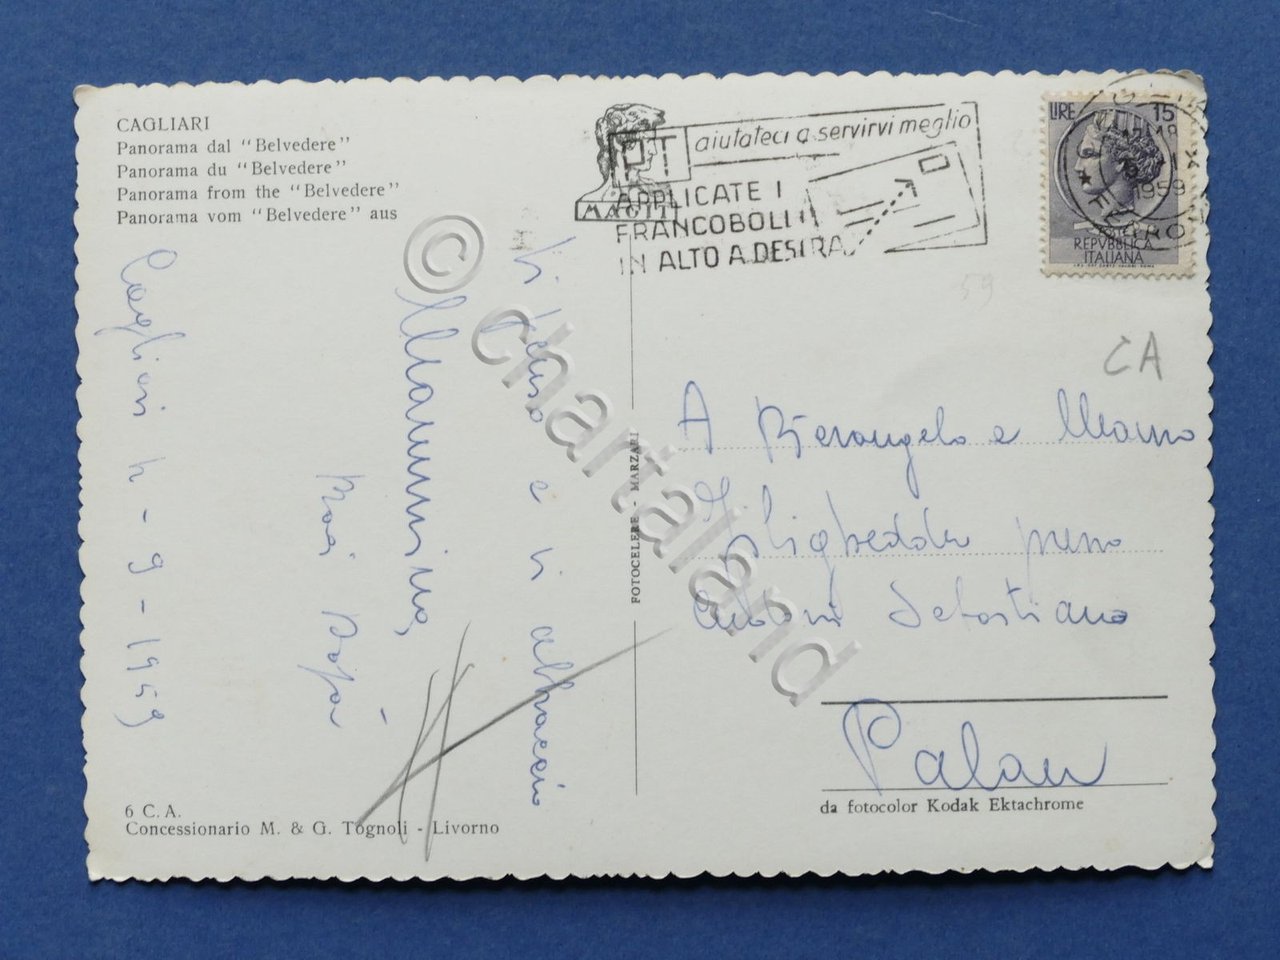 CAGLIARI
Panorama dal "Belvedere"
Panorama du "Belvedere"
Panorama from the "Belvedere"
Panorama vom "Belvedere" aus
MAGIT
PT
aiutateci a servirvi meglio
APPLICATE I
FRANCOBOLLI
IN ALTO A DESTRA
LIRE 15
1959
REPVBBLICA
ITALIANA
59
CA
Cagliari 4-9-1959
Vi penso e vi abbraccio
Mammina,
A Pierangelo e
presso
Sebastiano
Palau
FOTOCELERE - MARZARI
6 C. A.
Concessionario M. & G. Tognoli - Livorno
da fotocolor Kodak Ektachrome
© chartaland